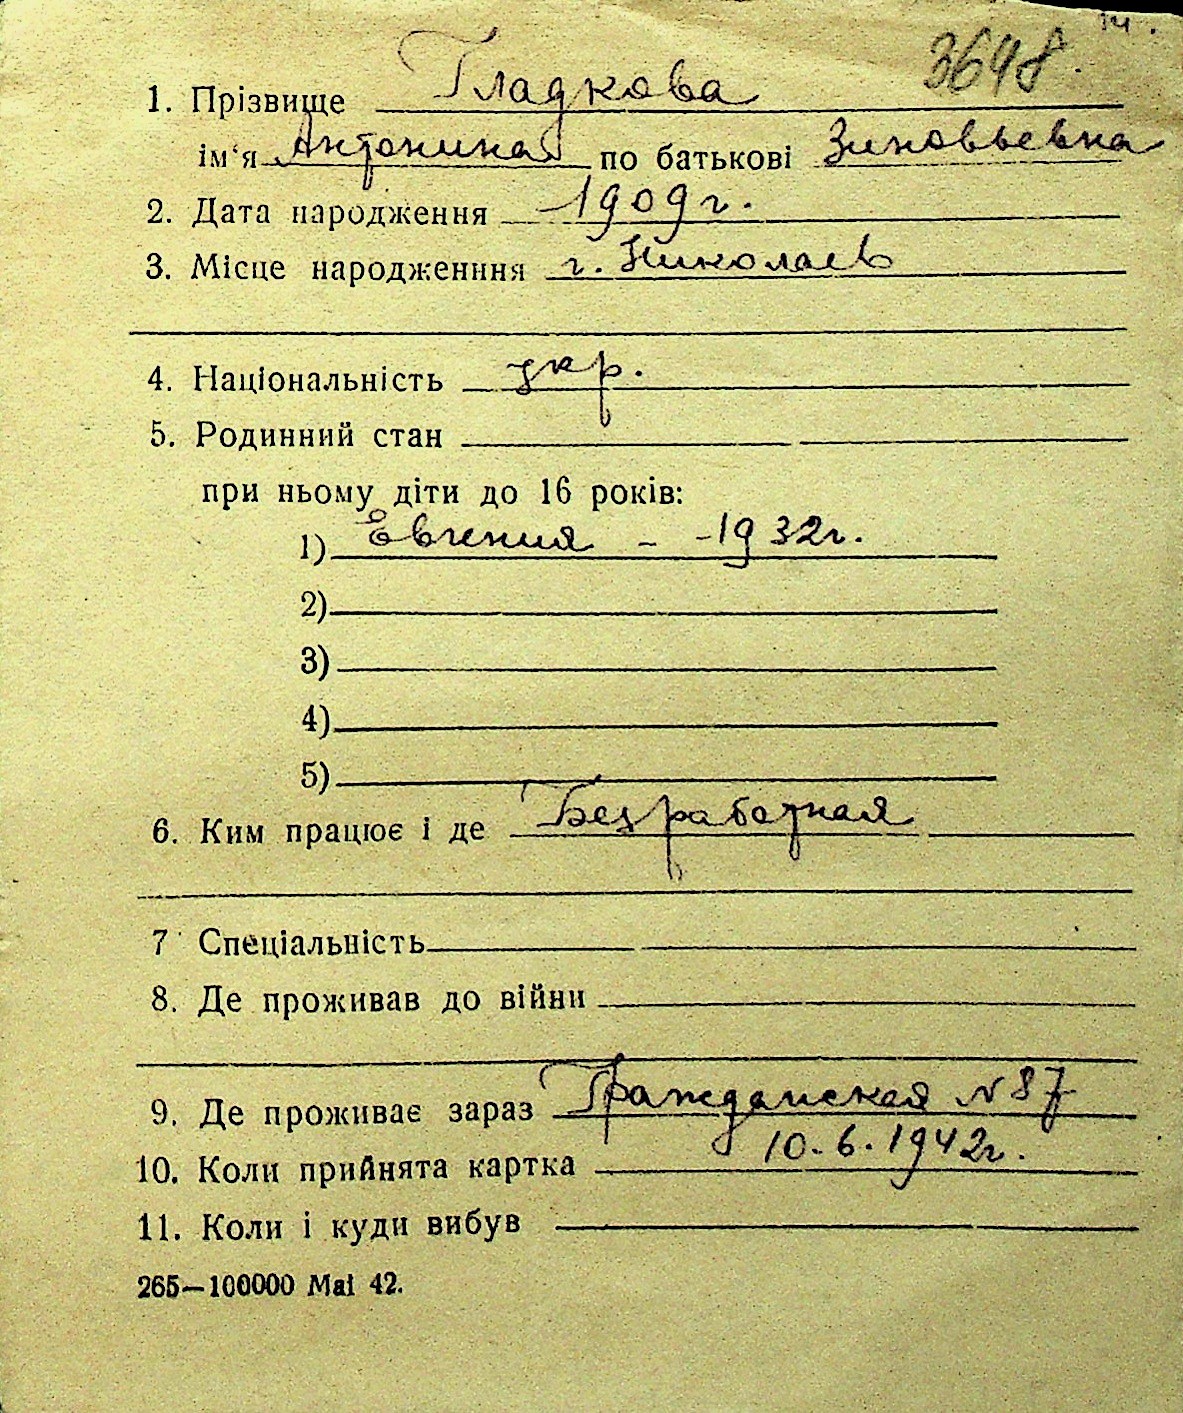 3648.
1. Прізвище Гладкова
ім'я Антонина по батькові Зиновьевна
2. Дата народження 1909 г.
3. Місце народженння г. Николаев
4. Національність укр.
5. Родинний стан
при ньому діти до 16 років:
1) Евгения - - 1932 г.
2)
3)
4)
5)
6. Ким працює і де Безработная
7 Спеціальність
8. Де проживав до війни
9. Де проживає зараз Гражданская № 87
10. Коли прийнята картка 10. 6. 1942 г.
11. Коли і куди вибув
265—100000 Mai 42.